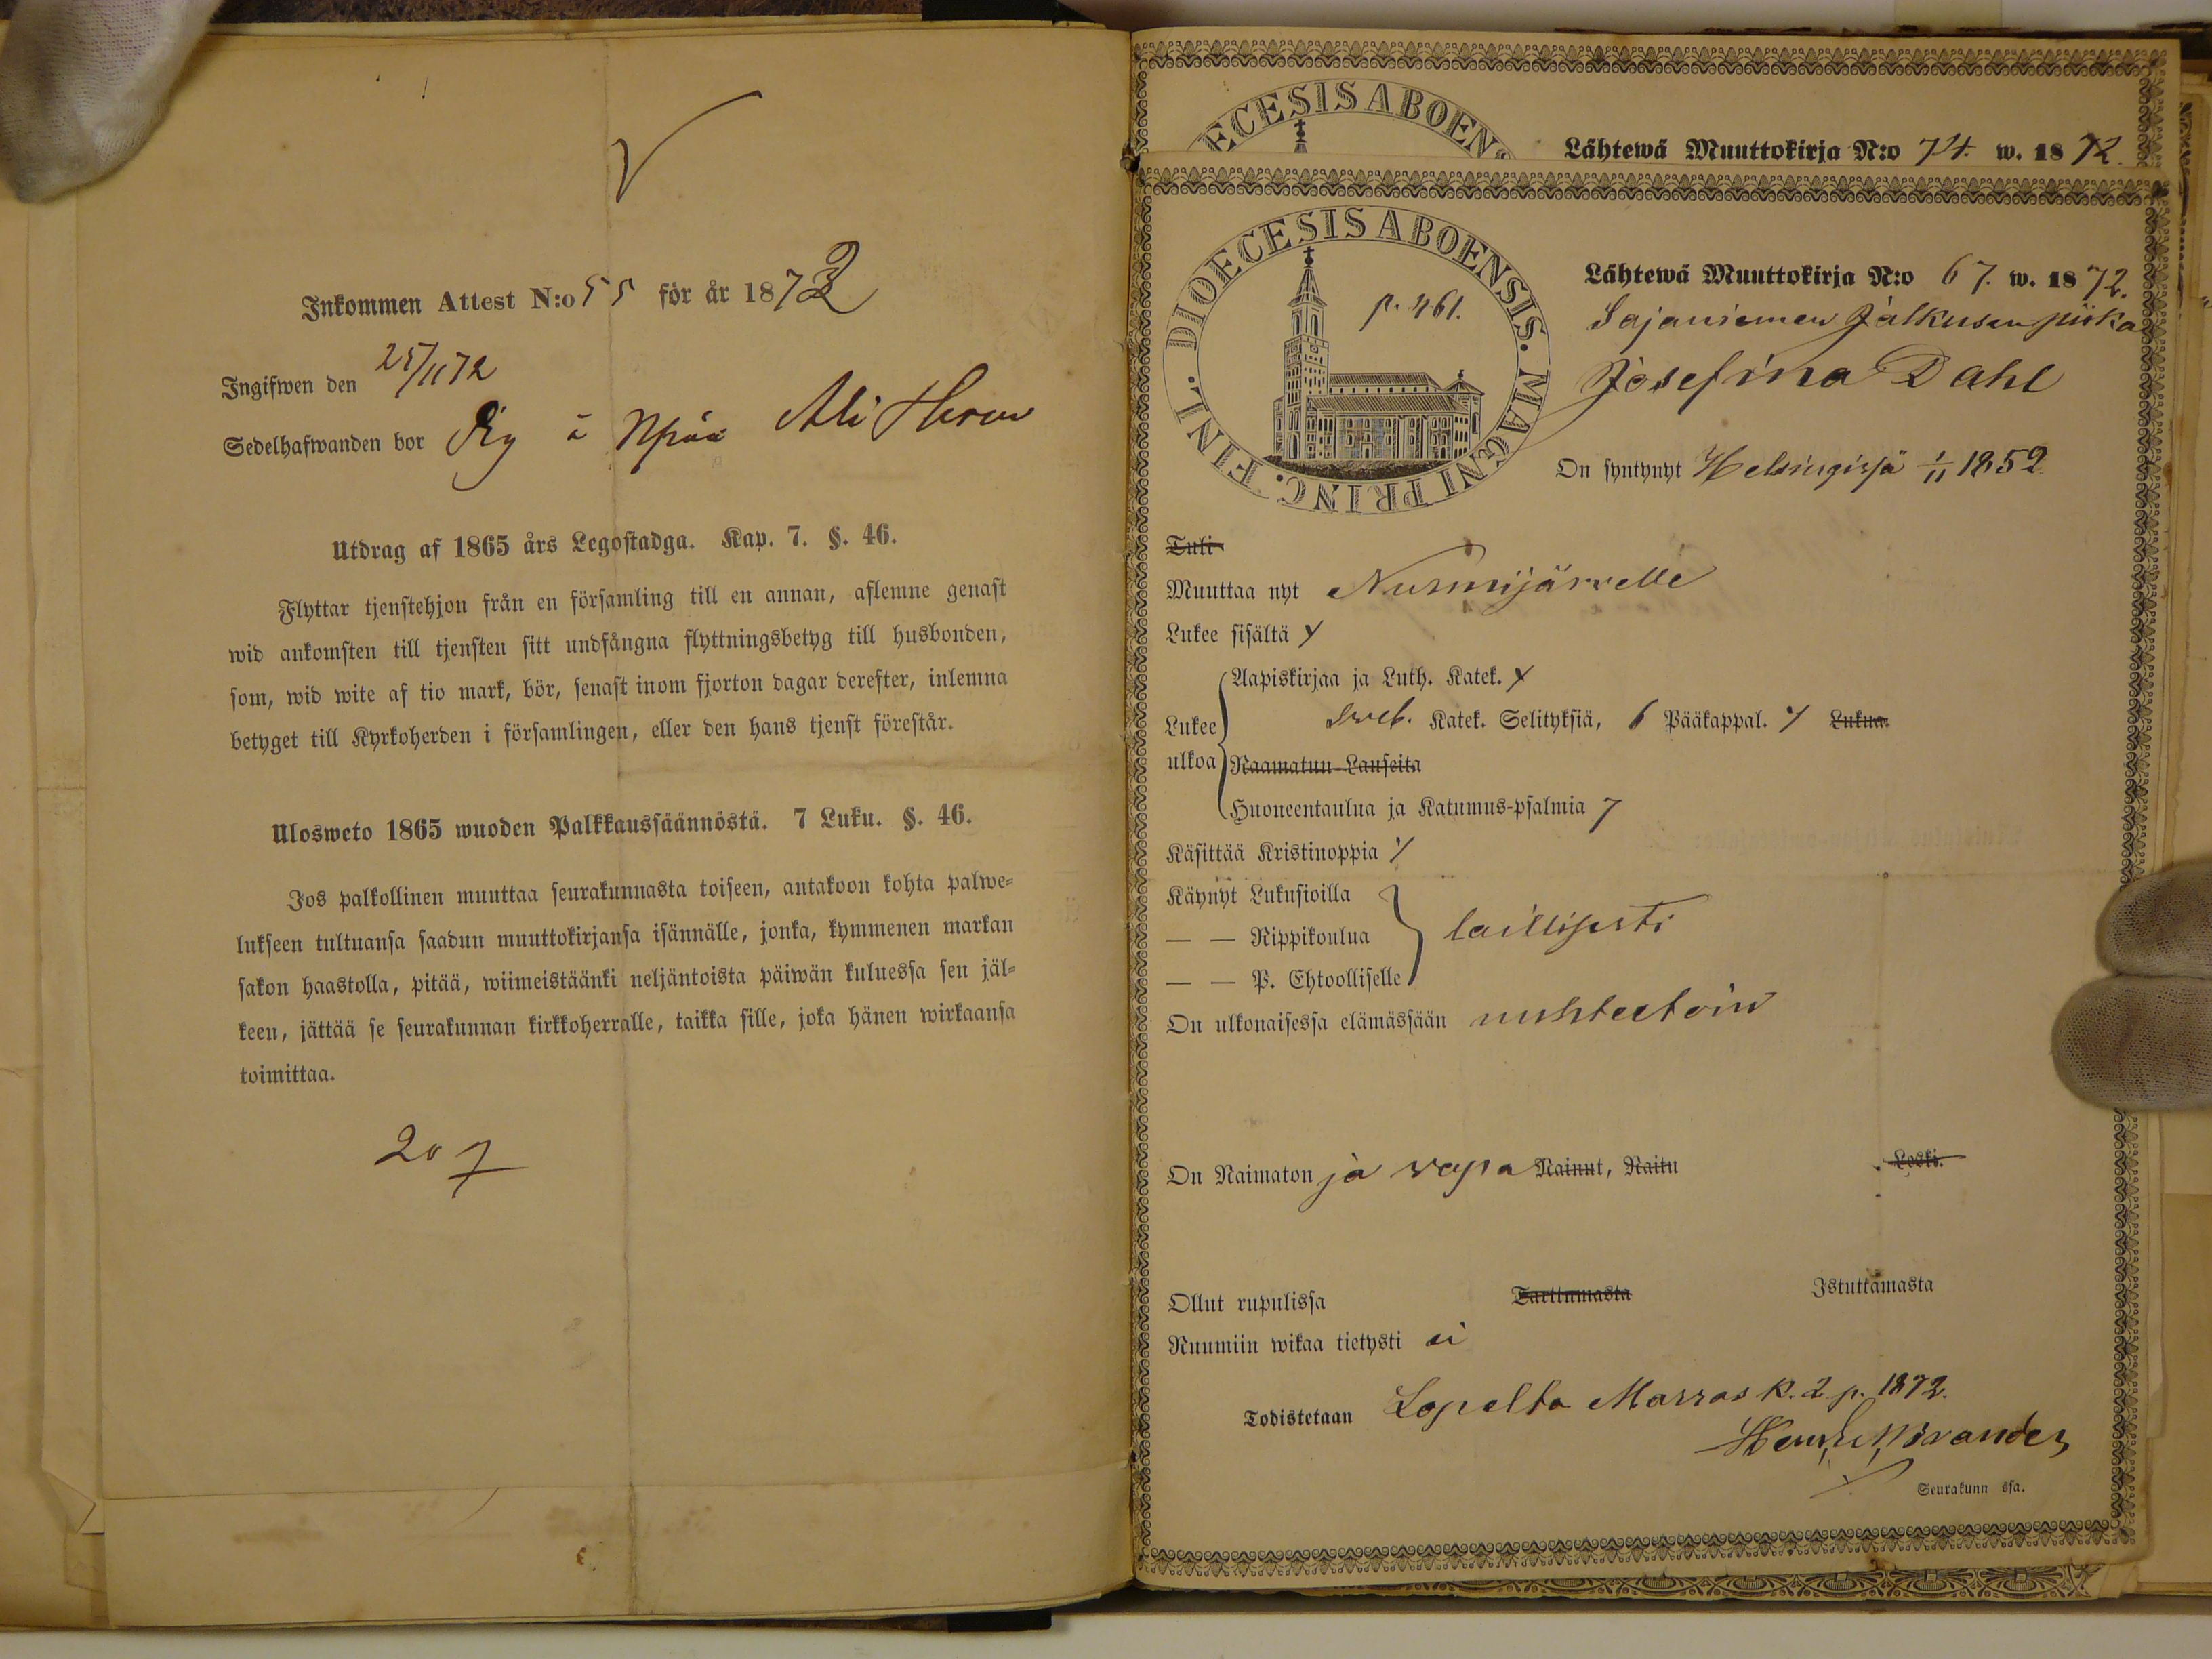 Inkommen Attest N:o 55 för år 1872
Ingifwen den 25/11 72
Sedelhafwanden bor i
Utdrag af 1865 års Legostadga. Kap. 7. §. 46.
Flyttar tjenstehjon från en församling till en annan, aflemne genast
wid ankomsten till tjensten sitt undfångna flyttningsbetyg till husbonden,
som, wid wite af tio mark, bör, senast inom fjorton dagar derefter, inlemna
betyget till Kyrkoherden i församlingen, eller den hans tjenst förestår.
Ulosweto 1865 wuoden Palkkaussäännöstä. 7 Luku. §. 46.
Jos palkollinen muuttaa seurakunnasta toiseen, antakoon kohta palwe=
lukseen tultuansa saadun muuttokirjansa isännälle, jonka, kymmenen markan
sakon haastolla, pitää, wiimeistäänki neljäntoista päiwän kuluessa sen jäl=
keen, jättää se seurakunnan kirkkoherralle, taikka sille, joka hänen wirkaansa
toimittaa.
207
ECESIS ABOEN
Lähtewä Muuttokirja N:o 74. w. 1872.
DIOECESIS ABOENSIS. MAGNI PRINC. FINL.
p. 461.
Lähtewä Muuttokirja N:o 67. w. 1872.
Sajaniemen Jalkusen piika
Josefina Dahl
On syntynyt Helsingissä 1/11 1852
Tuli
Muuttaa nyt Nurmijärvelle
Lukee sisältä
Aapiskirjaa ja Luth. Katek.
Lukee ulkoa
Sweb. Katek. Selityksiä, 6 Pääkappal. Lukua.
Raamatun-Lauseita
Huoneentaulua ja Katumus-psalmia
Käsittää Kristinoppia
Käynyt Lukusioilla
— — Rippikoulua laillisesti
— — P. Ehtoolliselle
On ulkonaisessa elämässään nuhteetoin
On Naimaton ja vapa Nainut, Naitu Leski.
Ollut rupulissa Tarttumasta Istuttamasta
Ruumiin wikaa tietysti ei
Todistetaan Lopelta Marras k. 2 p. 1872.
Seurakunn ssa.